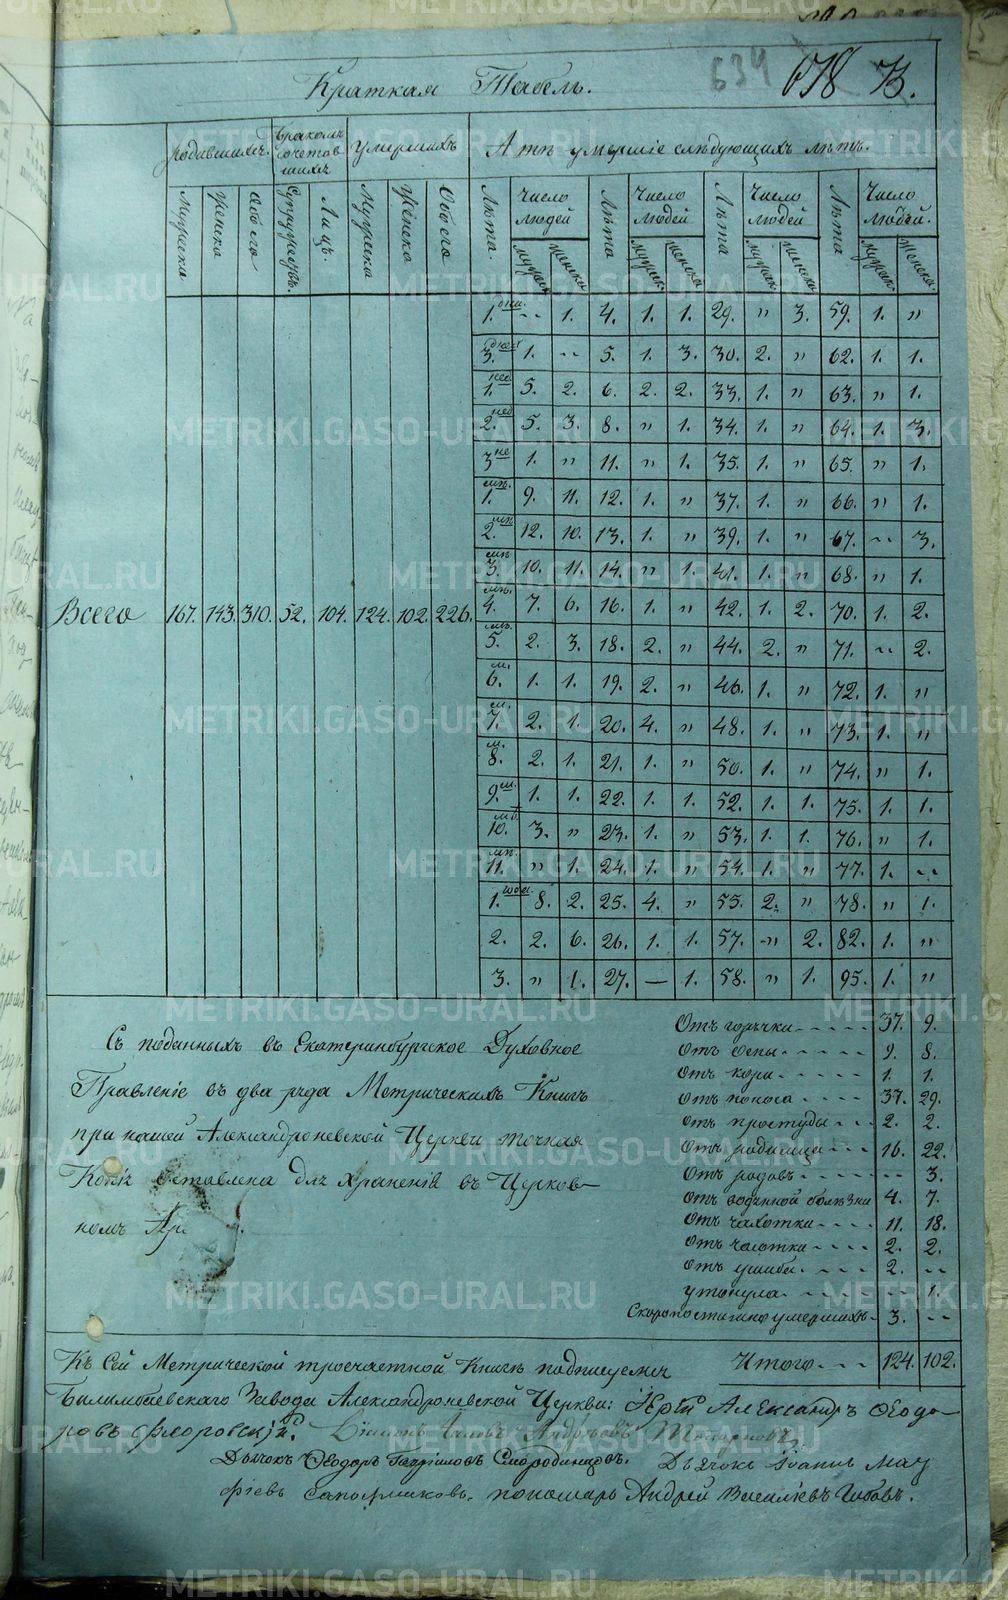 634 678 73.
Краткая Табель.
родившихся. бракомъ сочетавшихся умершихъ А тѣ умершіе слѣдующихъ лѣтъ.
Мужеска Женска Обоего Супружествъ. Лицъ. Мужеска Женска Обоего Лѣта. Число людей Лѣта Число людей Лѣта Число людей Лѣта Число людей.
мужеск. женска. мужеск. женска мужеск. женска мужеск. женска.
1. дни. -- 1. 4. 1. 1. 29. " 3. 59. 1. "
3. дней 1. -- 5. 1. 3. 30. 2. " 62. 1. 1.
1. нед. 5. 2. 6. 2. 2. 33. 1. " 63. " 1.
2. нед 5. 3. 8. " 1. 34. 1. " 64. 1. 3.
3 не 1. " 11. " 1. 35. 1. " 65. " 1.
1. мѣ. 9. 11. 12. 1. " 37. 1. " 66. " 1.
2. мѣ 12. 10. 13. 1. " 39. 1. " 67. -- 3.
3. мѣ 10. 11. 14. " 1. 41. 1. " 68. " 1.
Всего 167. 143. 310. 52. 104. 124. 102. 226. 4. мѣ. 7. 6. 16. 1. " 42. 1. 2. 70. 1. 2.
5. мѣ. 2. 3. 18. 2. " 44. 2. " 71. -- 2.
6. м. 1. 1. 19. 2. " 46. 1. " 72. 1. "
7. м. 2. 1. 20. 4. " 48. 1. " 73. 1. "
8. м. 2. 1. 21. 1. " 50. 1. " 74. " 1.
9. м. 1. 1. 22. 1. 1. 52. 1. 1. 75. 1. 1.
10. мѣ. 3. " 23. 1. " 53. 1. 1. 76. " 1.
11. мѣ. " 1. 24. 1. " 54. 1. " 77. 1. --
1. 8. 2. 25. 4. " 55. 2. " 78. " 1.
2. 2. 6. 26. 1. 1. 57. -" 2. 82. 1. "
3. " 1. 27. — 1. 58. " 1. 95. 1. "
Съ поданныхъ въ Екатеринбургское Духовное
Правленіе въ два ряда Метрическихъ Книгъ
при нашей Александроневской Церкви точная
Копія оставлена для храненія въ Церков-
номъ Ар
Отъ горячки ----- 37. 9.
Отъ оспы ----- 9. 8.
Отъ кори ----- 1. 1.
Отъ поноса ---- 37. 29.
Отъ простуды -- 2. 2.
Отъ родимца --- 16. 22.
Отъ родовъ ---- -- 3.
Отъ водяной болѣзни 4. 7.
Отъ чахотки ---- 11. 18.
Отъ чесотки ---- 2. 2.
Отъ ушиба. ---- 2. --
утонула. ----- -- 1.
Скоропостижно умершихъ - 3. --
Итого --- 124. 102.
Къ Сей Метрической троечастной Книгѣ подписуемся
Билимбаевскаго Завода Александроневской Церкви: Іерей Александръ Ѳеодо-
ровъ Флоровскій.
Дьячокъ Ѳеодоръ Гавріиловъ Смородинцовъ. Дьячокъ Іоаннъ Мат
фіевъ Сапожниковъ. пономарь Андрей Василіевъ
METRIKI.GASO-URAL.RU